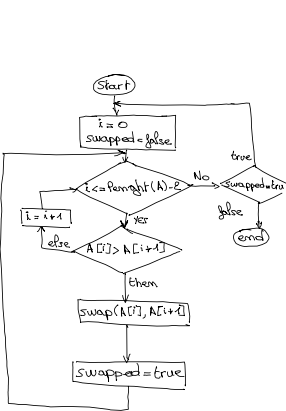 Start
i = 0
swapped = false
i <= lenght(A)-2
No
true
swapped=tru
false
end
yes
i = i+1
else
A[i] > A[i+1]
them
swap(A[i], A[i+1]
swapped = true